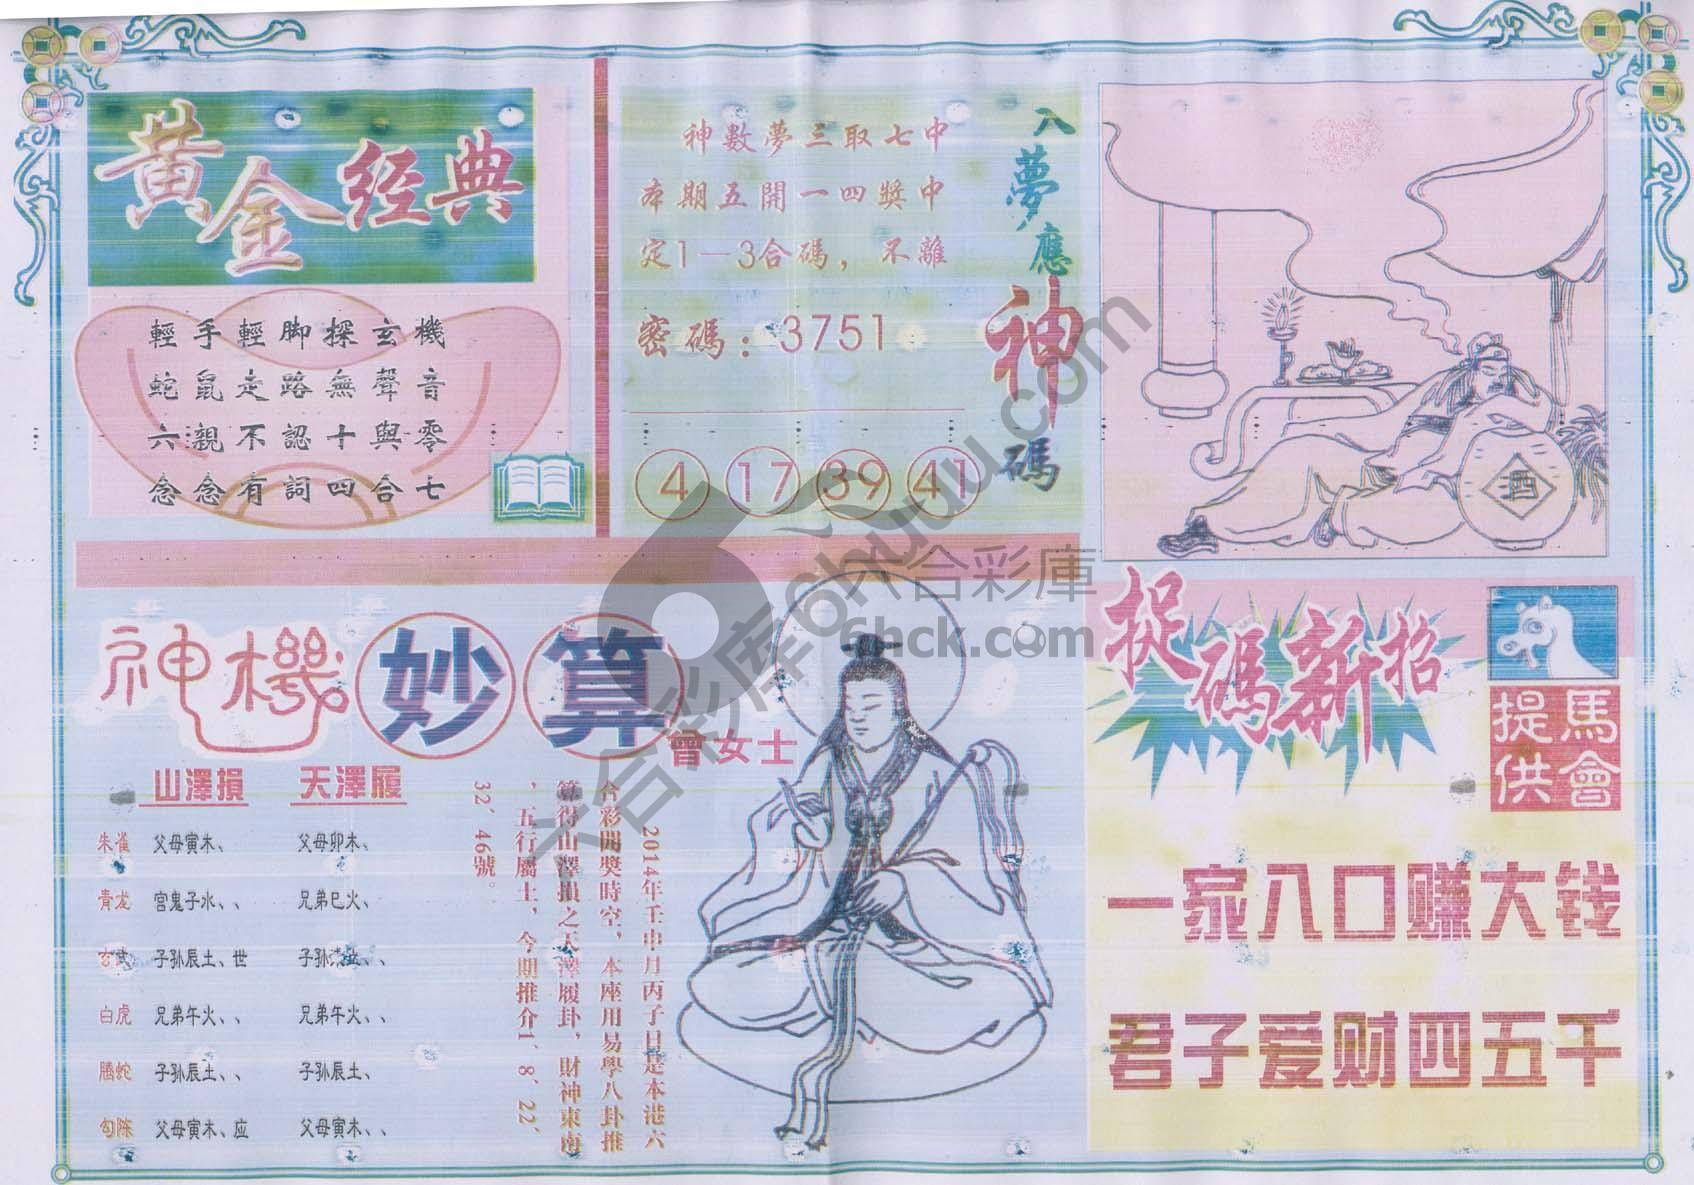 黄金经典
輕手輕脚探玄機
蛇鼠走路無聲音
六親不認十與零
念念有詞四合七
神數夢三取七中
本期五開一四獎中
定1—3合碼，不離
密碼：3751
4 17 39 41
入夢應神碼
酒
神機妙算
曾女士
山澤損 天澤履
朱雀 父母寅木、 父母卯木、
青龙 宫鬼子水、、 兄弟巳火、
玄武 子孙辰土、世 子孙
白虎 兄弟午火、、 兄弟午火、、
腾蛇 子孙辰土、、 子孙辰土、
勾陈 父母寅木、应 父母寅木、、
2014年壬申月丙子日是本港六
合彩開獎時空，本座用易學八卦推
算得山澤損之天澤履卦，財神東南
，五行屬土，今期推介1、8、22、
32、46號。
捉碼新招
馬會
提供
一家八口赚大钱
君子爱财四五千
六合彩库6huuu.com
六合彩庫
6hck.com